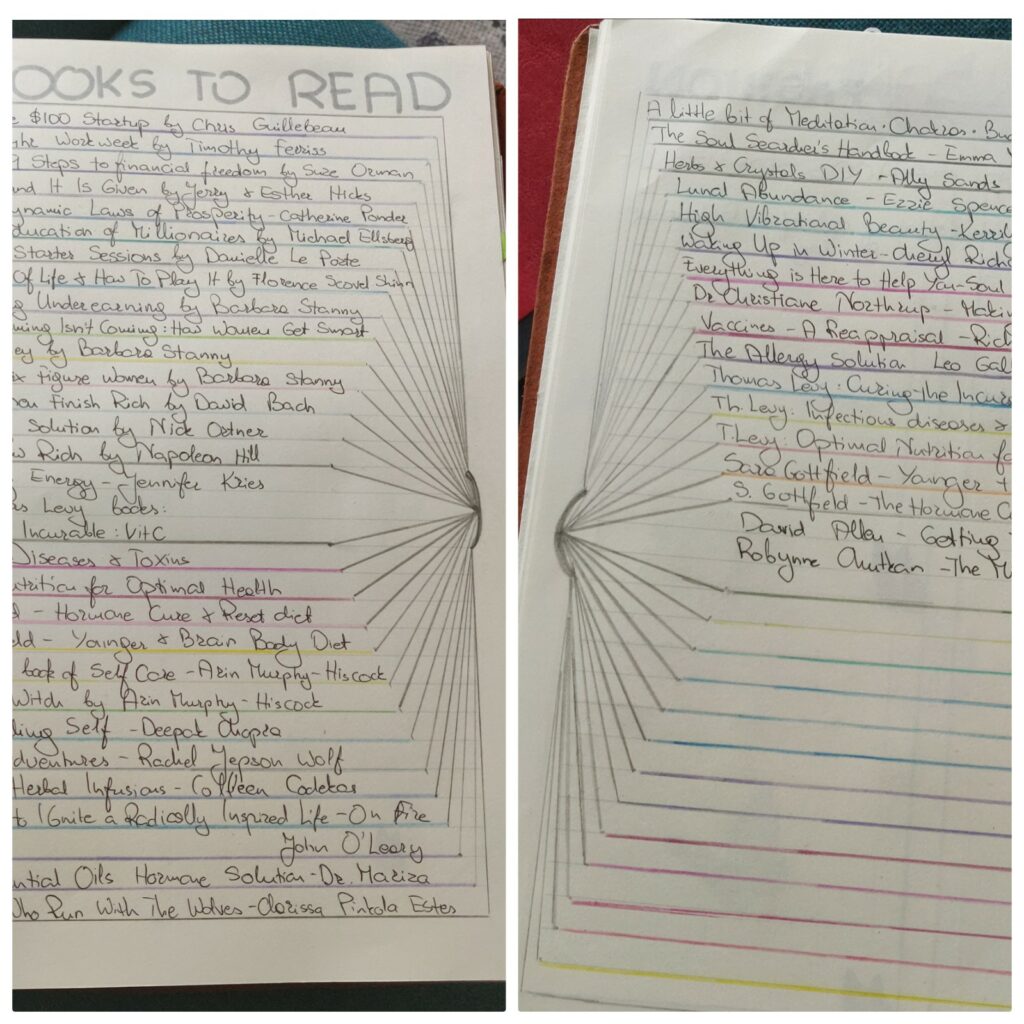 OOKS TO READ
e $100 Startup by Chris Guillebeau
Workweek by Timothy Ferriss
9 Steps to financial freedom by Suze Orman
and It Is Given by Jerry & Esther Hicks
ynamic Laws of Prosperity - Catherine Ponder
ducation of Millionaires by Michael Ellsberg
Starter Sessions by Danielle Le Porte
Of Life & How To Play It by Florence Scovel Shinn
g Underearning by Barbara Stanny
ming Isn't Coming: How Women Get Smart
ey by Barbara Stanny
ix Figure Women by Barbara Stanny
You Finish Rich by David Bach
Solution by Nick Ortner
w Rich by Napoleon Hill
Energy - Jennifer Kries
as Levy books:
Incurable: Vit C
Diseases & Toxins
utrition for Optimal Health
d - Hormone Cure & Reset diet
ld - Younger & Brain Body Diet
book of Self Care - Arin Murphy-Hiscock
Witch by Arin Murphy-Hiscock
ling Self - Deepak Chopra
dventures - Rachel Jepson Wolf
Herbal Infusions - Colleen Codekas
to IGnite a Radically Inspired Life - On Fire
John O'Leary
ential Oils Hormone Solution - Dr. Mariza
Who Run With The Wolves - Clarissa Pinkola Estes
A little bit of Meditation · Chakras · Bu
The Soul Searcher's Handbook - Emma
Herbs & Crystals DIY - Ally Sands
Lunar Abundance - Ezzie Spence
High Vibrational Beauty - Kerril
Waking Up in Winter - Cheryl Rich
Everything is Here to Help You - Soul
Dr Christiane Northrup - Makin
Vaccines - A Reappraisal - Rich
The Allergy Solution Leo Gal
Thomas Levy: Curing the Incur
Th. Levy: Infectious diseases &
T. Levy: Optimal Nutrition fo
Sara Gottfield - Younger +
S. Gottfield - The Hormone C
David Allen - Getting
Robynne Chutkan - The M